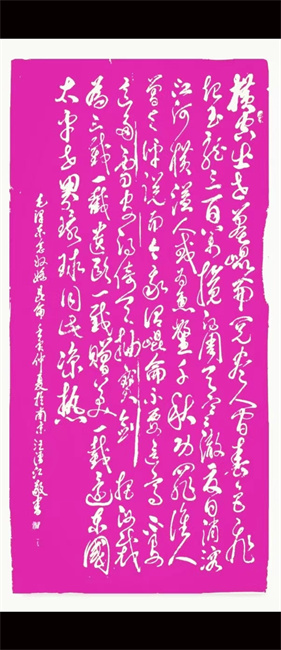 横空出世莽崑崙阅尽人间春色飞
起玉龙三百万搅得周天寒彻夏日消溶
江河横溢人或为鱼鳖千秋功罪谁人
曾与评说而今我谓崑崙不要这高不要
这多雪安得倚天抽宝剑把汝裁
为三截一截遗欧一截赠美一截还东国
太平世界环球同此凉热
毛泽东念奴娇昆仑仲夏于南京敬书